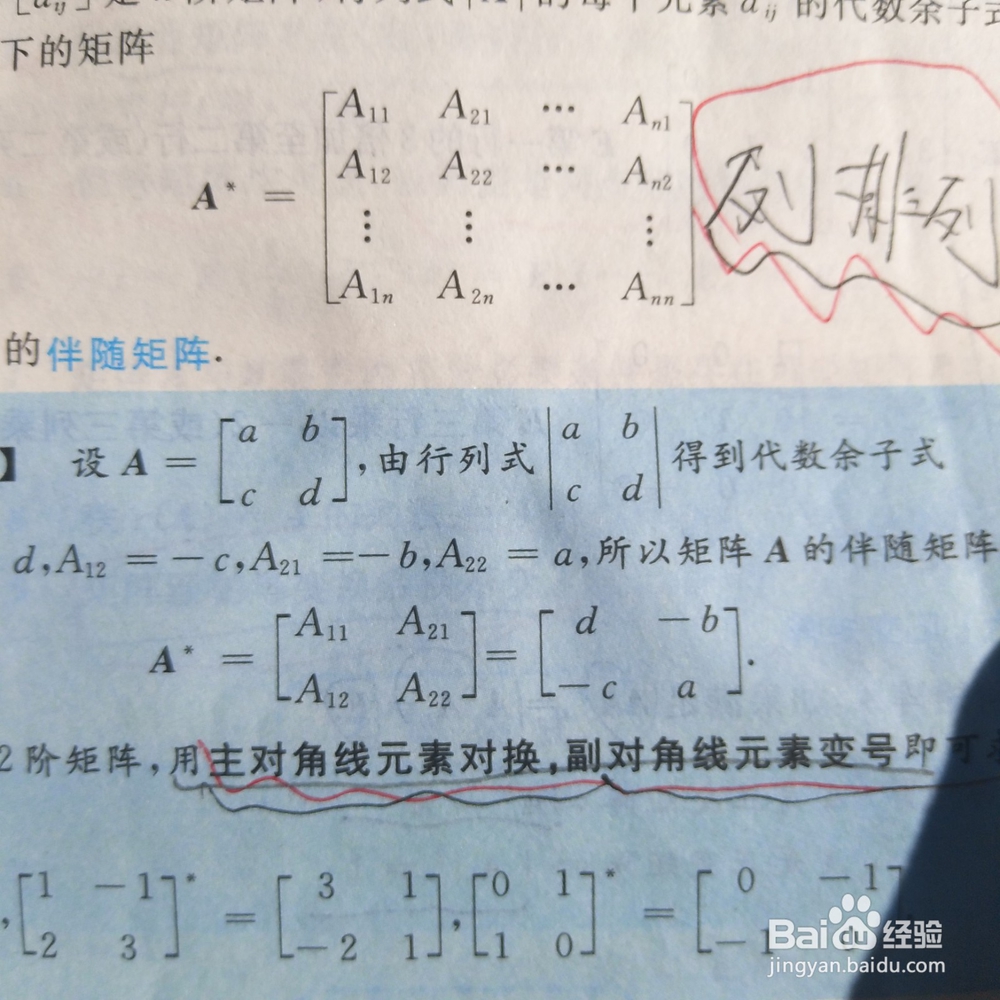 [a_ij]是 阶矩阵 的每个元素 a_ij 的代数余子式
下的矩阵
A* = [A₁₁ A₂₁ ⋯ Aₙ₁
A₁₂ A₂₂ ⋯ Aₙ₂
⋮ ⋮ ⋮
A₁ₙ A₂ₙ ⋯ Aₙₙ]
列排列
的伴随矩阵.
】 设 A = [a b
c d], 由行列式 |a b
c d| 得到代数余子式
d, A₁₂ = −c, A₂₁ = −b, A₂₂ = a, 所以矩阵 A 的伴随矩阵
A* = [A₁₁ A₂₁
A₁₂ A₂₂] = [d −b
−c a].
2 阶矩阵, 用主对角线元素对换, 副对角线元素变号即可
, [1 −1
2 3]* = [3 1
−2 1], [0 1
1 0]* = [0 −1
−1
Baidu 经验
jingyan.baidu.com